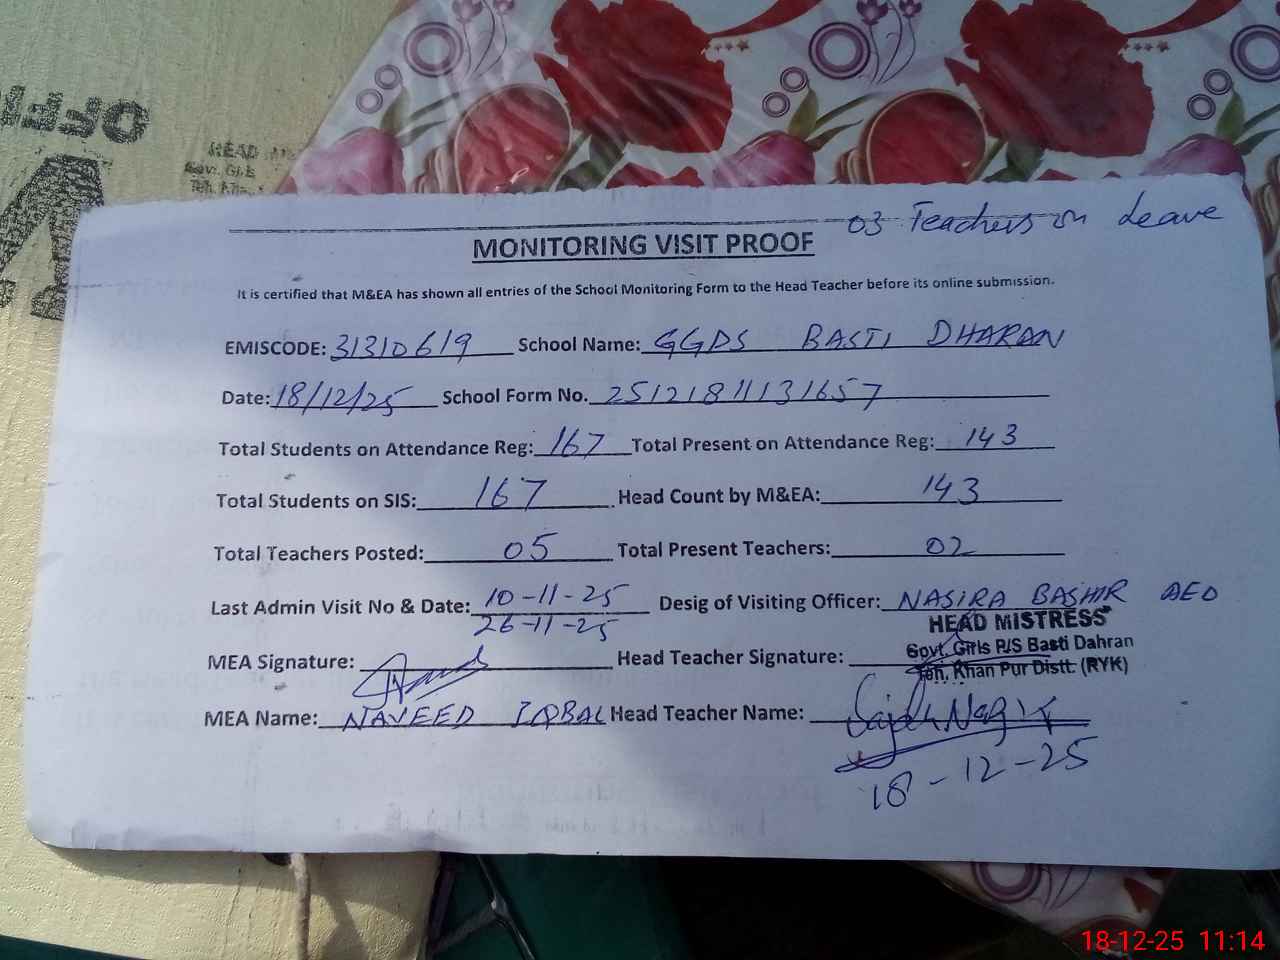 OFFI
HEAD
03 Teachers on Leave
MONITORING VISIT PROOF
It is certified that M&EA has shown all entries of the School Monitoring Form to the Head Teacher before its online submission.
EMISCODE: 31310619 School Name: GGPS BASTI DHARAN
Date: 18/12/25 School Form No. 25121811131657
Total Students on Attendance Reg: 167 Total Present on Attendance Reg: 143
Total Students on SIS: 167 Head Count by M&EA: 143
Total Teachers Posted: 05 Total Present Teachers: 02
Last Admin Visit No & Date: 10-11-25 Desig of Visiting Officer: NASIRA BASHIR AEO
26-11-25
HEAD MISTRESS
Govt. Girls P/S Basti Dahran
Teh. Khan Pur Distt. (RYK)
MEA Signature: Head Teacher Signature:
MEA Name: NAVEED IQBAL Head Teacher Name:
18-12-25
18-12-25 11:14